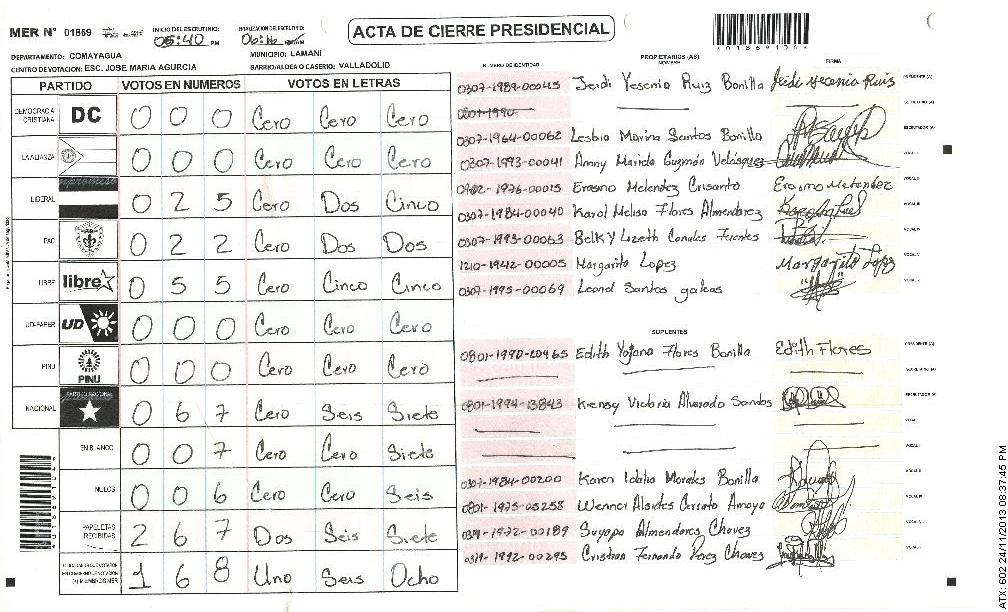 MER N° 01869
INICIO DEL ESCRUTINIO: 05:40 PM
FINALIZACION DEL ESCRUTINIO: 06:16
ACTA DE CIERRE PRESIDENCIAL
01869106
DEPARTAMENTO: COMAYAGUA
MUNICIPIO: LAMANI
CENTRO DE VOTACION: ESC. JOSE MARIA AGURCIA
BARRIO/ALDEA O CASERIO: VALLADOLID
PARTIDO VOTOS EN NUMEROS VOTOS EN LETRAS
DEMOCRACIA CRISTIANA DC 0 0 0 Cero Cero Cero
LA ALIANZA 0 0 0 Cero Cero Cero
LIBERAL 0 2 5 Cero Dos Cinco
PAC 0 2 2 Cero Dos Dos
LIBRE libre 0 5 5 Cero Cinco Cinco
UD-FAPER UD 0 0 0 Cero Cero Cero
PINU PINU 0 0 0 Cero Cero Cero
NACIONAL PARTIDO NACIONAL 0 6 7 Cero Seis Siete
EN BLANCO 0 0 7 Cero Cero Siete
NULOS 0 0 6 Cero Cero Seis
PAPELETAS RECIBIDAS 2 6 7 Dos Seis Siete
1 6 8 Uno Seis Ocho
NUMERO DE IDENTIDAD PROPIETARIOS (AS) NOMBRE FIRMA
0307-1989-00045 Jeidi Yesenia Ruiz Bonilla Jeidi Yesenia Ruis PRESIDENTE (A)
SECRETARIO (A)
0307-1964-00062 Lesbia Marina Santos Bonilla ESCRUTADOR (A)
0307-1993-00041 Anny Mariela Guzmán Velásquez VOCAL I
0902-1976-00015 Erasmo Melendez Crisanto Erasmo Melendez VOCAL II
0307-1984-00040 Karol Melisa Flores Almendarez VOCAL III
0307-1993-00063 Belky Lizeth Canales Fuentes VOCAL IV
1210-1942-00005 Margarito Lopez Margarito Lopez
0307-1995-00069 Leonel Santos galeas
SUPLENTES
0801-1990-20465 Edith Yojana Flores Bonilla Edith Flores PRESIDENTE (A)
SECRETARIO (A)
0801-1994-13843 Kensy Victoria Alvarado Santos ESCRUTADOR (A)
VOCAL I
VOCAL II
0307-1984-00200 Karen Idalia Morales Bonilla
0801-1975-05258 Wenner Alsides Cerrato Amaya
Suyapa Almendares Chavez
Cristian Fernando Paez Chavez
ATX: 602 24/11/2013 08:37:45 PM